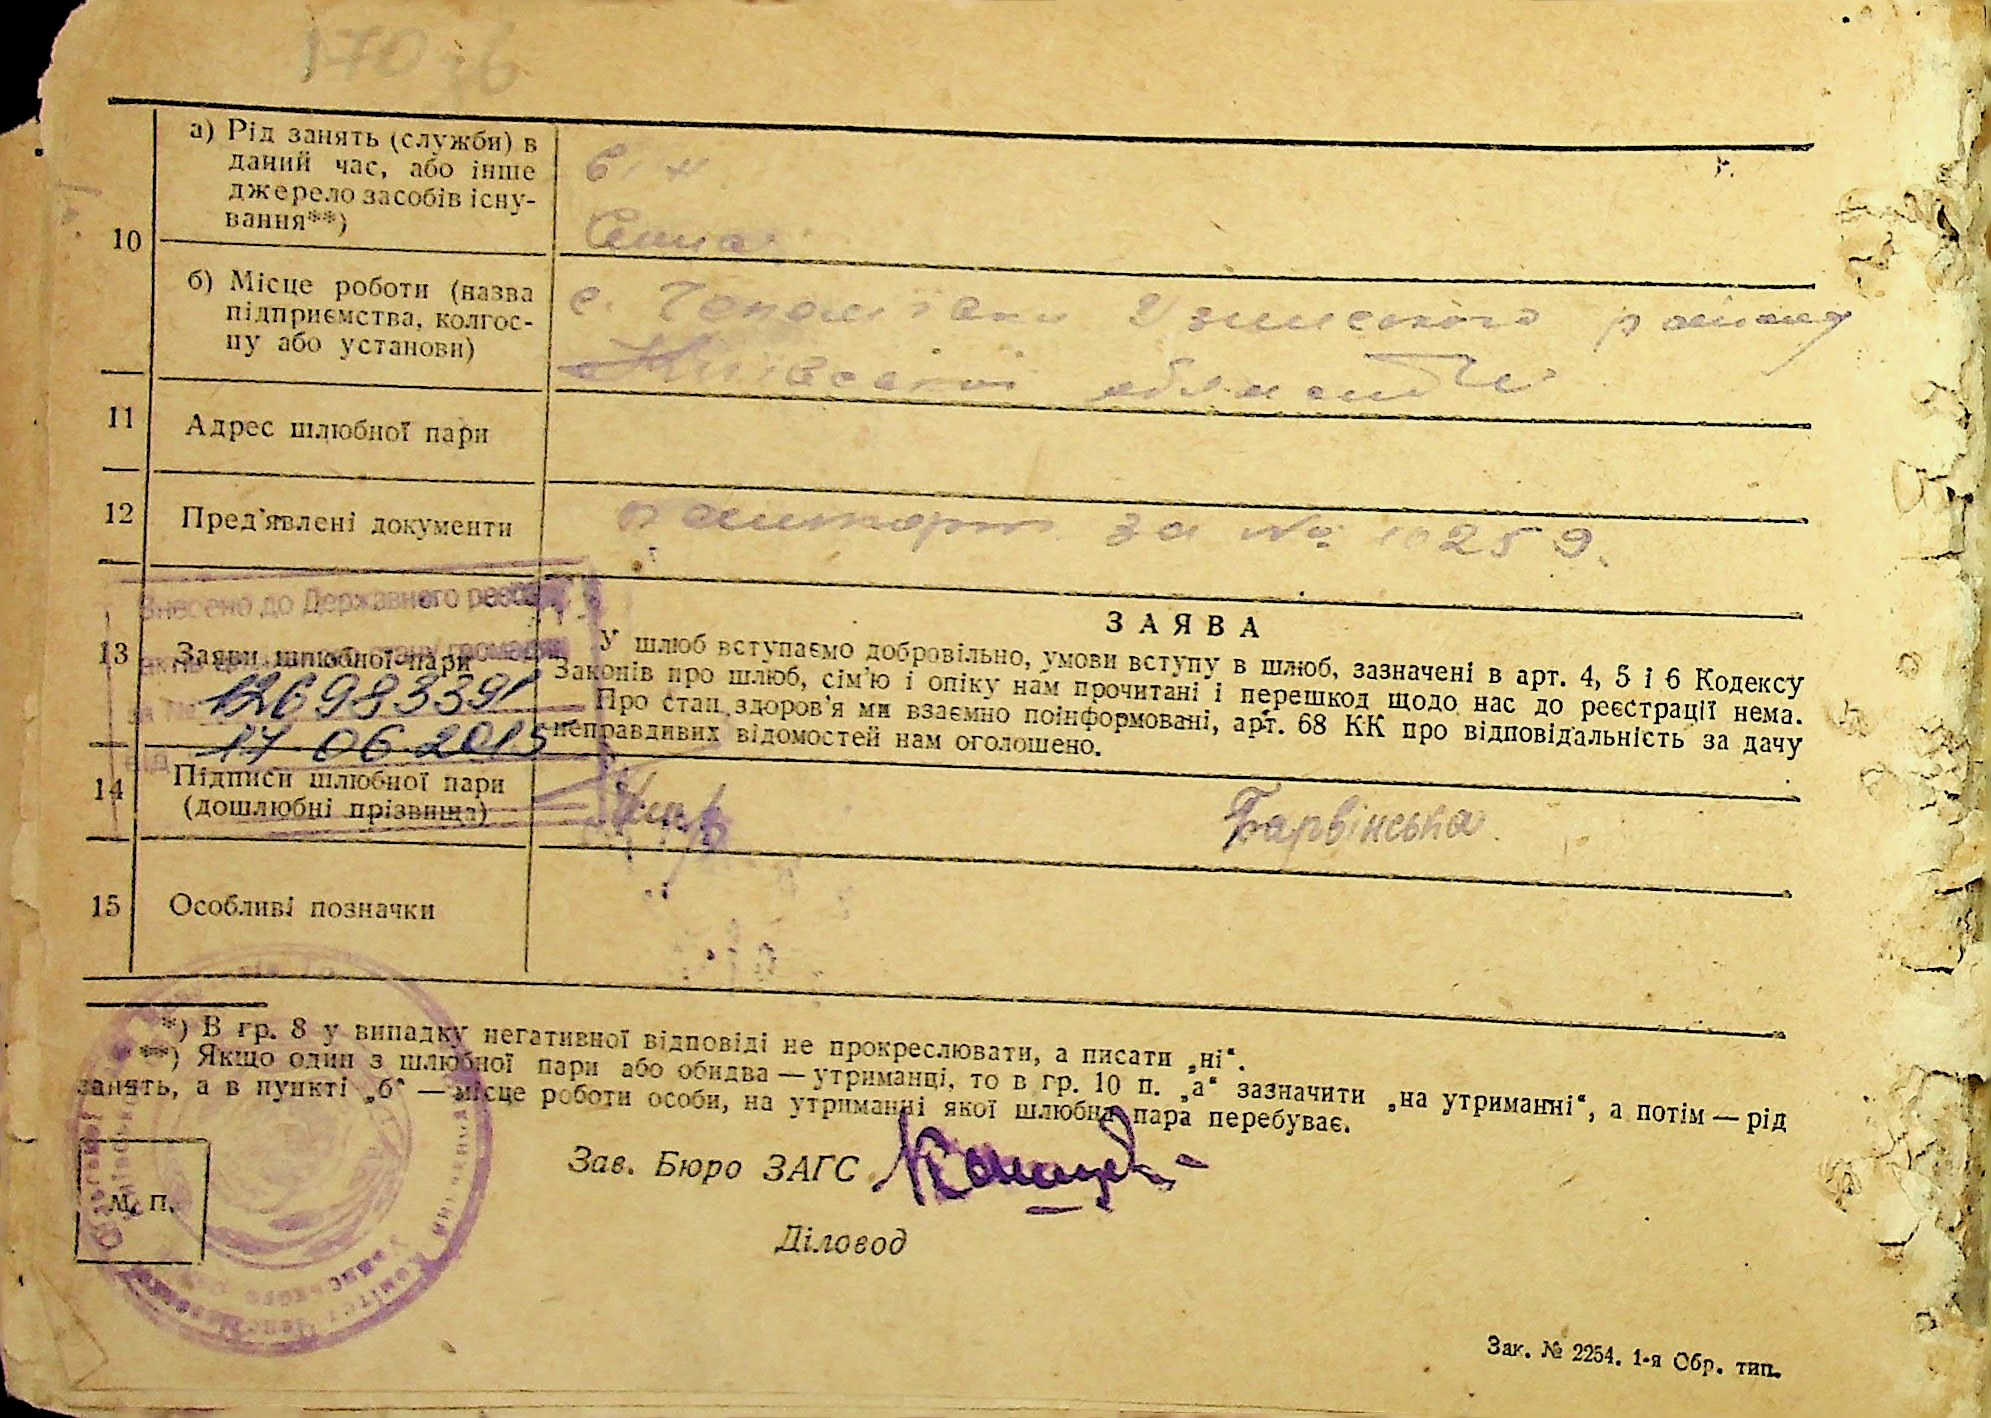 10
а) Рід занять (служби) в
даний час, або інше
джерело засобів існу-
вання**)
б) Місце роботи (назва
підприємства, колгос-
пу або установи)
с.
району
Київської області
11
Адрес шлюбної пари
12
Пред'явлені документи
паспорт за №
13
Заяви шлюбної пари
Внесено до Державного реєстру
126983391
17 06 2015
ЗАЯВА
У шлюб вступаємо добровільно, умови вступу в шлюб, зазначені в арт. 4, 5 і 6 Кодексу
Законів про шлюб, сім'ю і опіку нам прочитані і перешкод щодо нас до реєстрації нема.
Про стан здоров'я ми взаємно поінформовані, арт. 68 КК про відповідальність за дачу
неправдивих відомостей нам оголошено.
14
Підписи шлюбної пари
(дошлюбні прізвища)
Барвінська
15
Особливі позначки
*) В гр. 8 у випадку негативної відповіді не прокреслювати, а писати „ні“.
**) Якщо один з шлюбної пари або обидва — утриманці, то в гр. 10 п. „а“ зазначити „на утриманні“, а потім — рід
занять, а в пункті „б“ — місце роботи особи, на утриманні якої шлюбна пара перебуває.
Зав. Бюро ЗАГС
М. П.
Діловод
Зак. № 2254. 1-я Обр. тип.